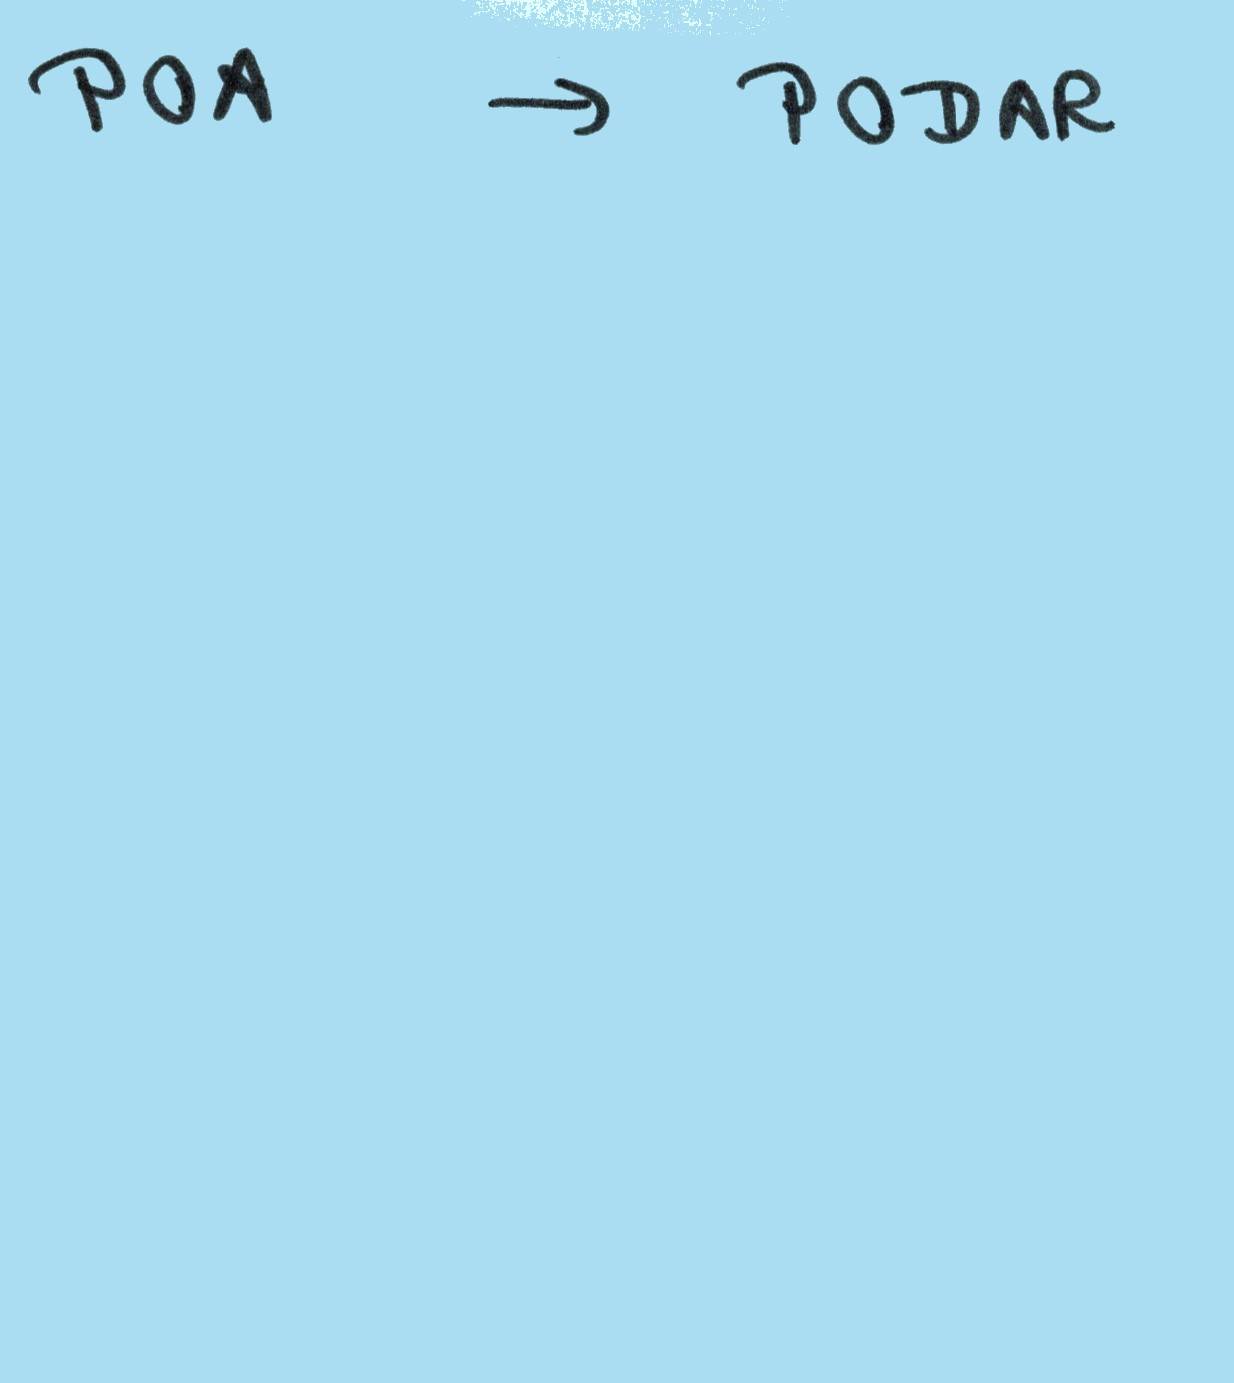 POA → PODAR